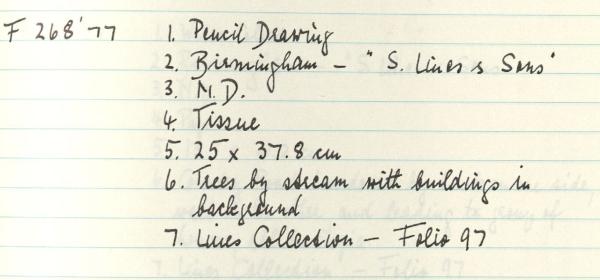 F 268'77 1. Pencil Drawing
2. Birmingham - "S. Lines & Sons"
3. N.D.
4. Tissue
5. 25 x 37.8 cm
6. Trees by stream with buildings in
background
7. Lines Collection - Folio 97